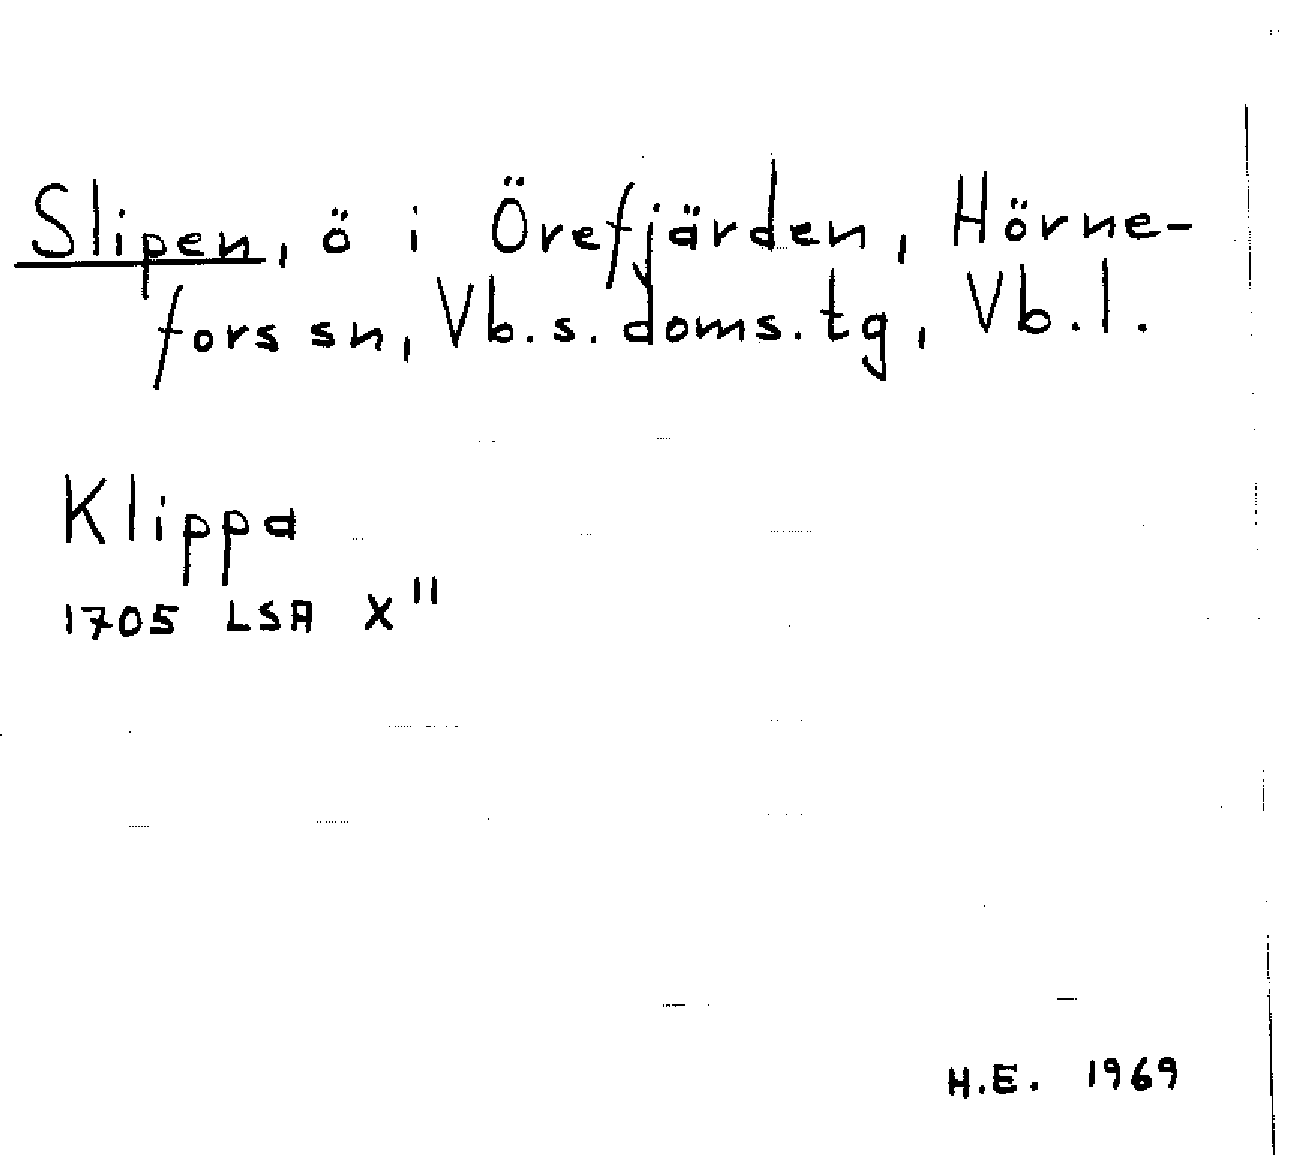 Slipen, ö i Örefjärden, Hörne-
fors sn, Vb.s.doms.tg, Vb.l.
Klippa
1705 LSA X"
H.E. 1969